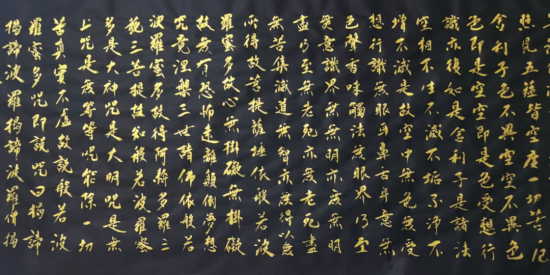 照見五蘊皆空度一切苦厄
舍利子色不異空空不異色
色即是空空即是色受想行
識亦復如是舍利子是諸法
空相不生不滅不垢不淨不
增不減是故空中無色無受
想行識無眼耳鼻舌身意無
色聲香味觸法無眼界乃至
無意識界無無明亦無無明
盡乃至無老死亦無老死盡
無苦集滅道無智亦無得以無
所得故菩提薩埵依般若波
羅蜜多故心無掛礙無掛礙
故無有恐怖遠離顛倒夢想
究竟涅槃三世諸佛依般若
波羅蜜多故得阿耨多羅三
藐三菩提故知般若波羅蜜
多是大神咒是大明咒是無
上咒是無等等咒能除一切
苦真實不虛故說般若波
羅蜜多咒即說咒曰揭諦
揭諦波羅揭諦波羅僧揭